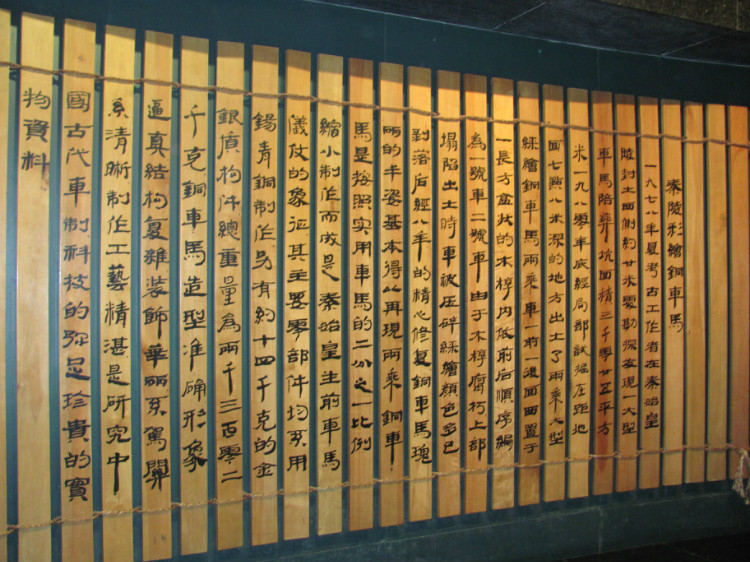 秦陵彩繪銅車馬
一九七八年夏考古工作者在秦始皇
陵封土西側約廿米處勘探发現一大型
車馬陪葬坑面積三千零廿五平方
米一九八零年底經局部試掘在距地
面七點八米深的地方出土了兩乘大型
綵繪銅車馬兩乘車一前一後面西置于
一長方盒狀的木椁内依前后順序編
為一號車二號車由于木椁腐朽上部
塌陷出土時車被压碎綵繪顏色多已
剥落后經八年的精心修复銅車馬瑰
丽的丰姿基本得以再現兩乘銅車
馬是按照实用車馬的二分之一比例
縮小制作而成是秦始皇生前車馬
儀仗的象征其主要零部件均系用
錫青銅制作另有約十四千克的金
銀质构件總重量為兩千三百零二
千克銅車馬造型准确形象
逼真結构复雜装飾華丽系駕關
系清晰制作工藝精湛是研究中
國古代車制科技的弥足珍貴的實
物資料